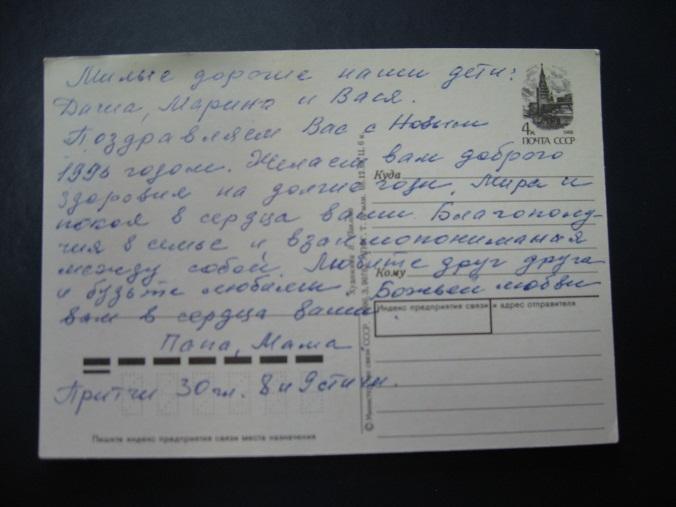 Милые дорогие наши дети:
Даша, Марина и Вася.
Поздравляем Вас с Новым
1996 годом. Желаем вам доброго
здоровия на долгие годы, мира и
покоя в сердца ваши. Благополу-
чия в семье и взаимопонимания
между собой. Любите друг друга
и будьте любимы Божьей любви
вам в сердца ваши.
Папа, Мама.
Притчи 30 гл. 8 и 9 стихи.
4к
ПОЧТА СССР
Куда
Кому
Индекс предприятия связи и адрес отправителя
Пишите индекс предприятия связи места назначения
© Министерство связи СССР.